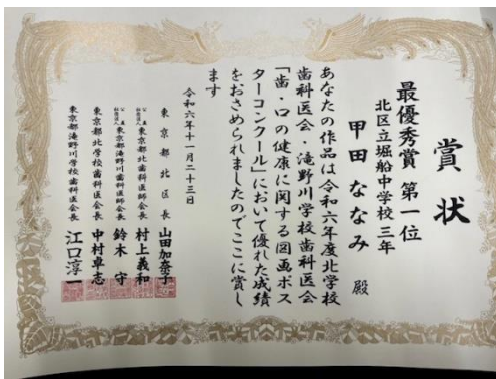 賞状
最優秀賞 第一位
北区立堀船中学校 三年
甲田 ななみ 殿
あなたの作品は令和六年度北学校
歯科医会・滝野川学校歯科医会
「歯・口の健康に関する図画ポス
ターコンクール」において優れた成績
をおさめられましたのでここに賞し
ます
令和六年十一月二十三日
東京都北区長 山田加奈子
公益社団法人 東京都北歯科医師会長 村上義和
公益社団法人 東京都滝野川歯科医師会長 鈴木 守
東京都北学校歯科医会長 中村卓志
東京都滝野川学校歯科医会長 江口淳一